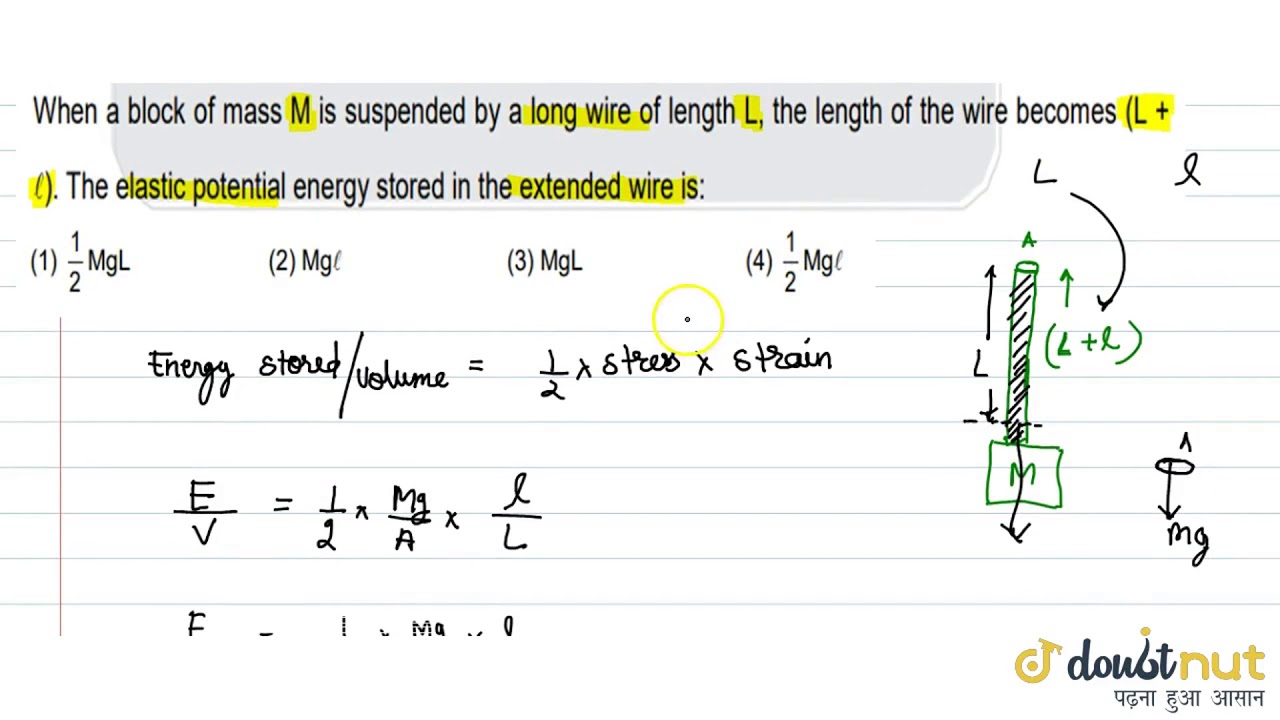 When a block of mass M is suspended by a long wire of length L, the length of the wire becomes (L +
ℓ). The elastic potential energy stored in the extended wire is:
(1) 1/2 MgL (2) Mgℓ (3) MgL (4) 1/2 Mgℓ
L l
A
L
(L+l)
M
A
Mg
Energy stored/volume = 1/2 × stress × strain
E/V = 1/2 × Mg/A × l/L
doubtnut
पढ़ना हुआ आसान